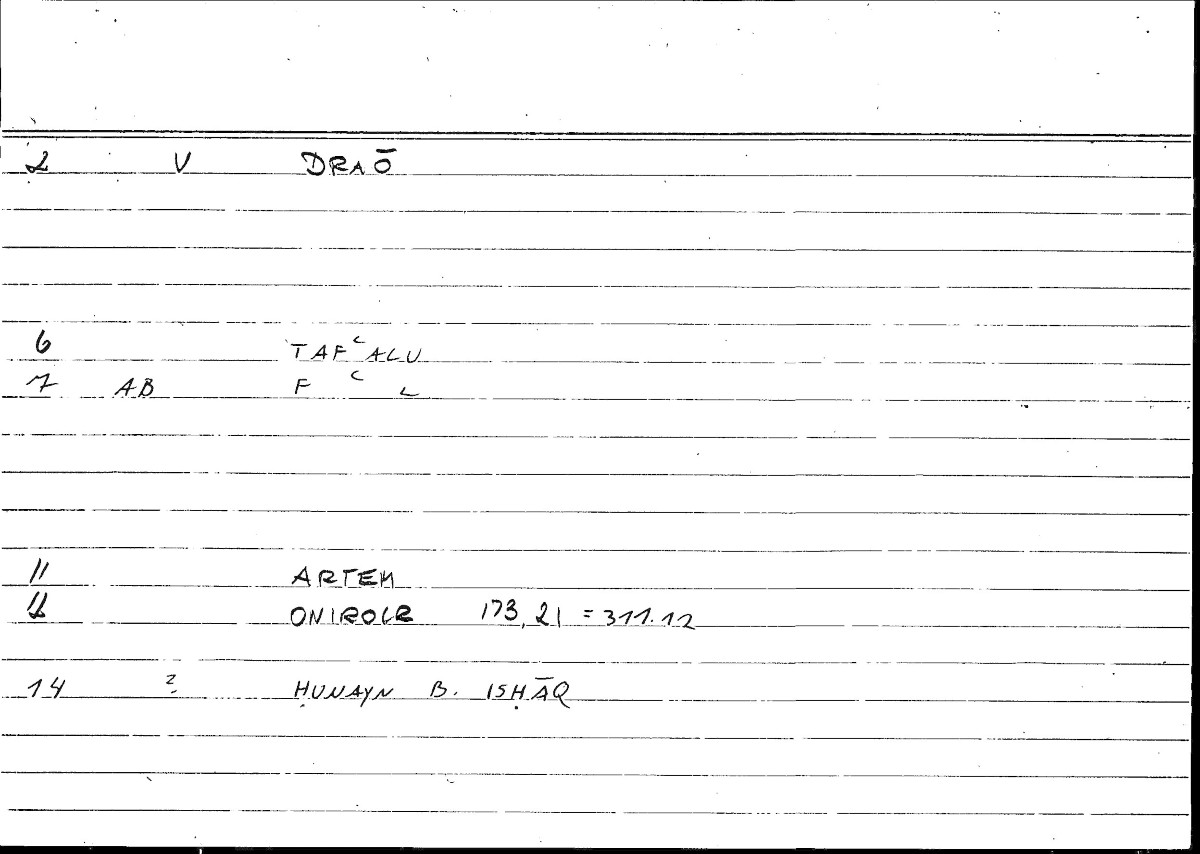 2 V DRAŌ
6 TAFʿALU
7 AB F ʿ L
11 ARTEM
12 ONIROCR 173,21 = 311.12
14 ? ḤUNAYN B. ISḤĀQ